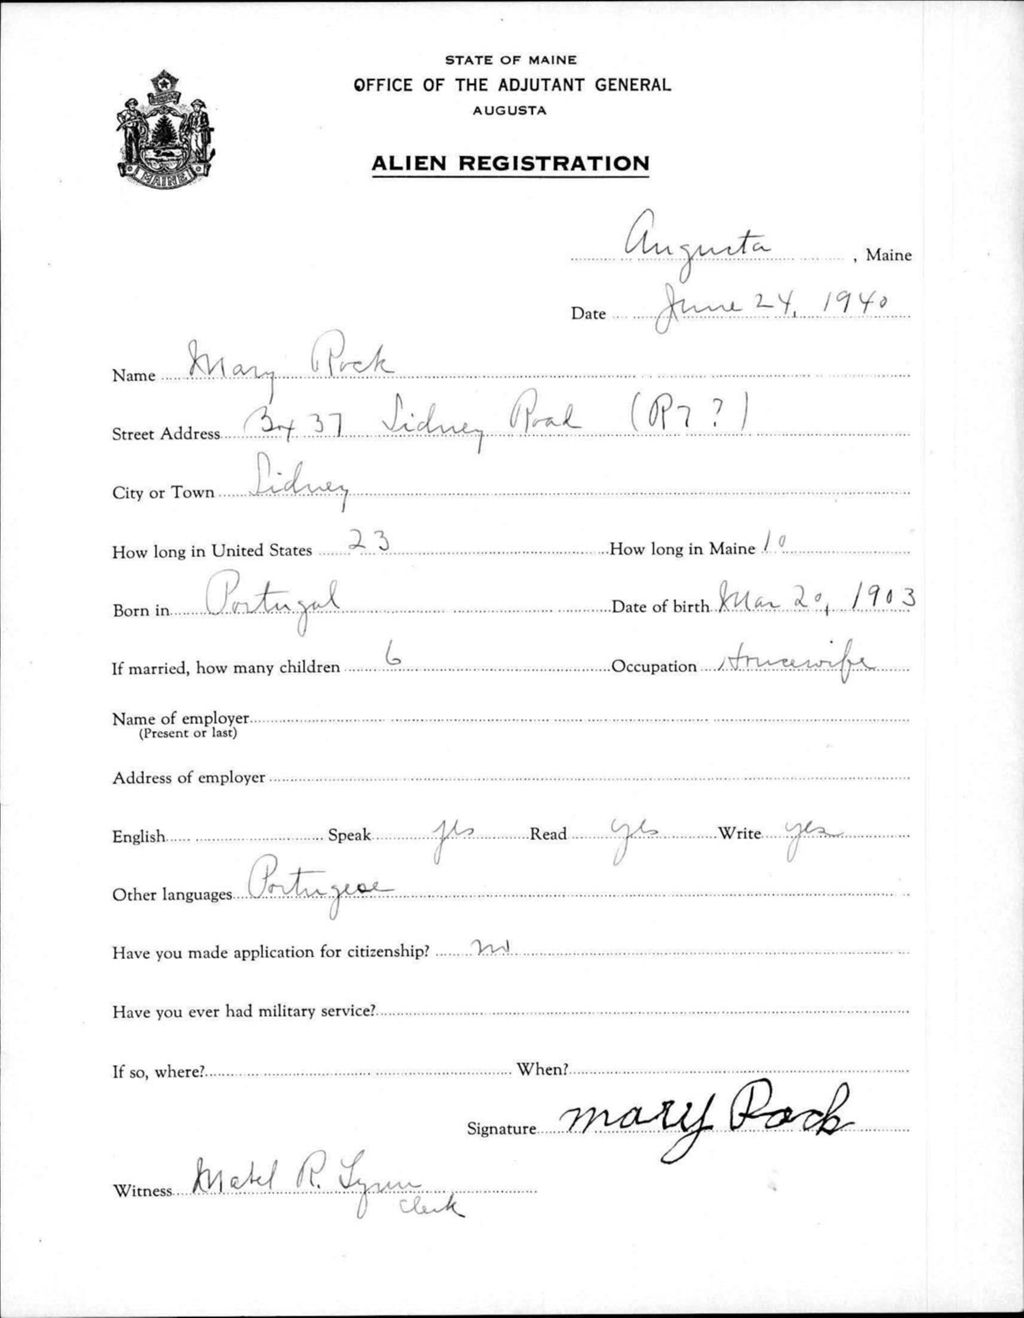 STATE OF MAINE
OFFICE OF THE ADJUTANT GENERAL
AUGUSTA
ALIEN REGISTRATION
MAINE
Augusta, Maine
Date June 24, 1940
Name Mary Rock
Street Address Box 37 Sidney Road (R7?)
City or Town Sidney
How long in United States 23 How long in Maine 10
Born in Portugal Date of birth Mar 20, 1903
If married, how many children 6 Occupation Housewife
Name of employer
(Present or last)
Address of employer
English Speak yes Read yes Write yes
Other languages Portugese
Have you made application for citizenship? no
Have you ever had military service?
If so, where? When?
Signature Mary Rock
Witness Mabel R. Lynn
Clerk